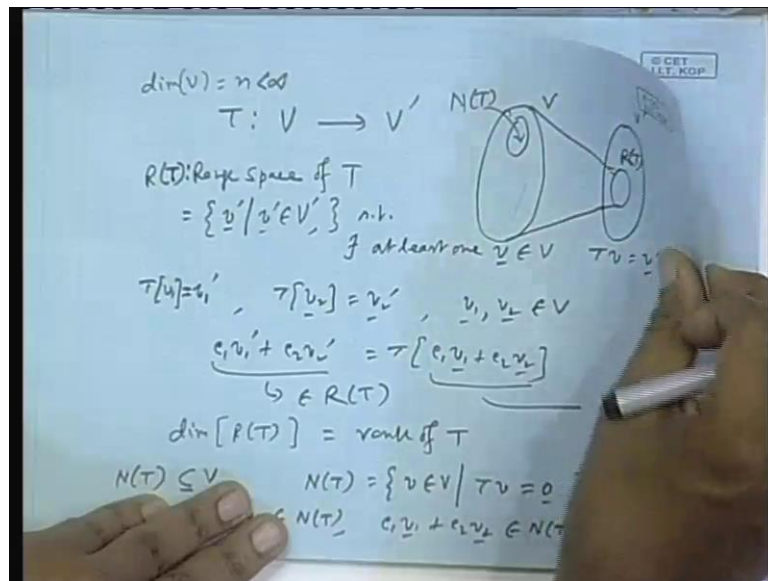 © CET
I.I.T. KGP
dim(V) = n < ∞
T : V → V'
N(T) V
R(T)
R(T): Range space of T
= { v' | v' ∈ V', } s.t.
∃ at least one v ∈ V Tv = v'
T[v₁] = v₁' , T[v₂] = v₂' , v₁, v₂ ∈ V
c₁v₁' + c₂v₂' = T[c₁v₁ + c₂v₂]
↳ ∈ R(T)
dim[R(T)] = rank of T
N(T) ⊆ V N(T) = { v ∈ V | Tv = 0
∈ N(T) c₁v₁ + c₂v₂ ∈ N(T